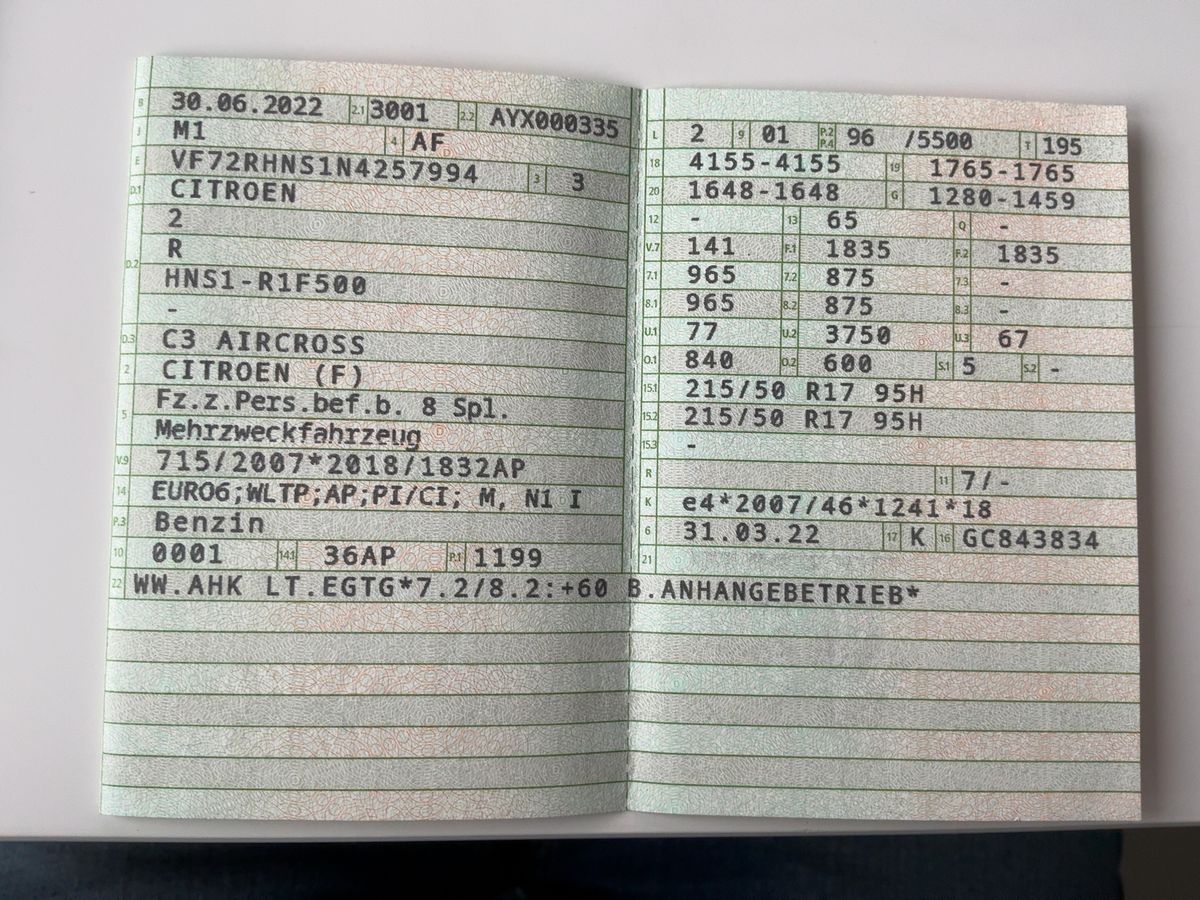 B 30.06.2022 2.1 3001 2.2 AYX000335
J M1 4 AF
E VF72RHNS1N4257994 3 3
D.1 CITROEN
2
D.2 R
HNS1-R1F500
-
D.3 C3 AIRCROSS
2 CITROEN (F)
5 Fz.z.Pers.bef.b. 8 Spl.
Mehrzweckfahrzeug
V.9 715/2007*2018/1832AP
14 EURO6;WLTP;AP;PI/CI; M, N1 I
P.3 Benzin
10 0001 14.1 36AP P.1 1199
L 2 9 01 P.2 P.4 96 /5500 T 195
18 4155-4155 19 1765-1765
20 1648-1648 G 1280-1459
12 - 13 65 Q -
V.7 141 F.1 1835 F.2 1835
7.1 965 7.2 875 7.3 -
8.1 965 8.2 875 8.3 -
U.1 77 U.2 3750 U.3 67
O.1 840 O.2 600 S.1 5 S.2 -
15.1 215/50 R17 95H
15.2 215/50 R17 95H
15.3 -
R 11 7/-
K e4*2007/46*1241*18
6 31.03.22 17 K 16 GC843834
21
22 WW.AHK LT.EGTG*7.2/8.2:+60 B.ANHANGEBETRIEB*